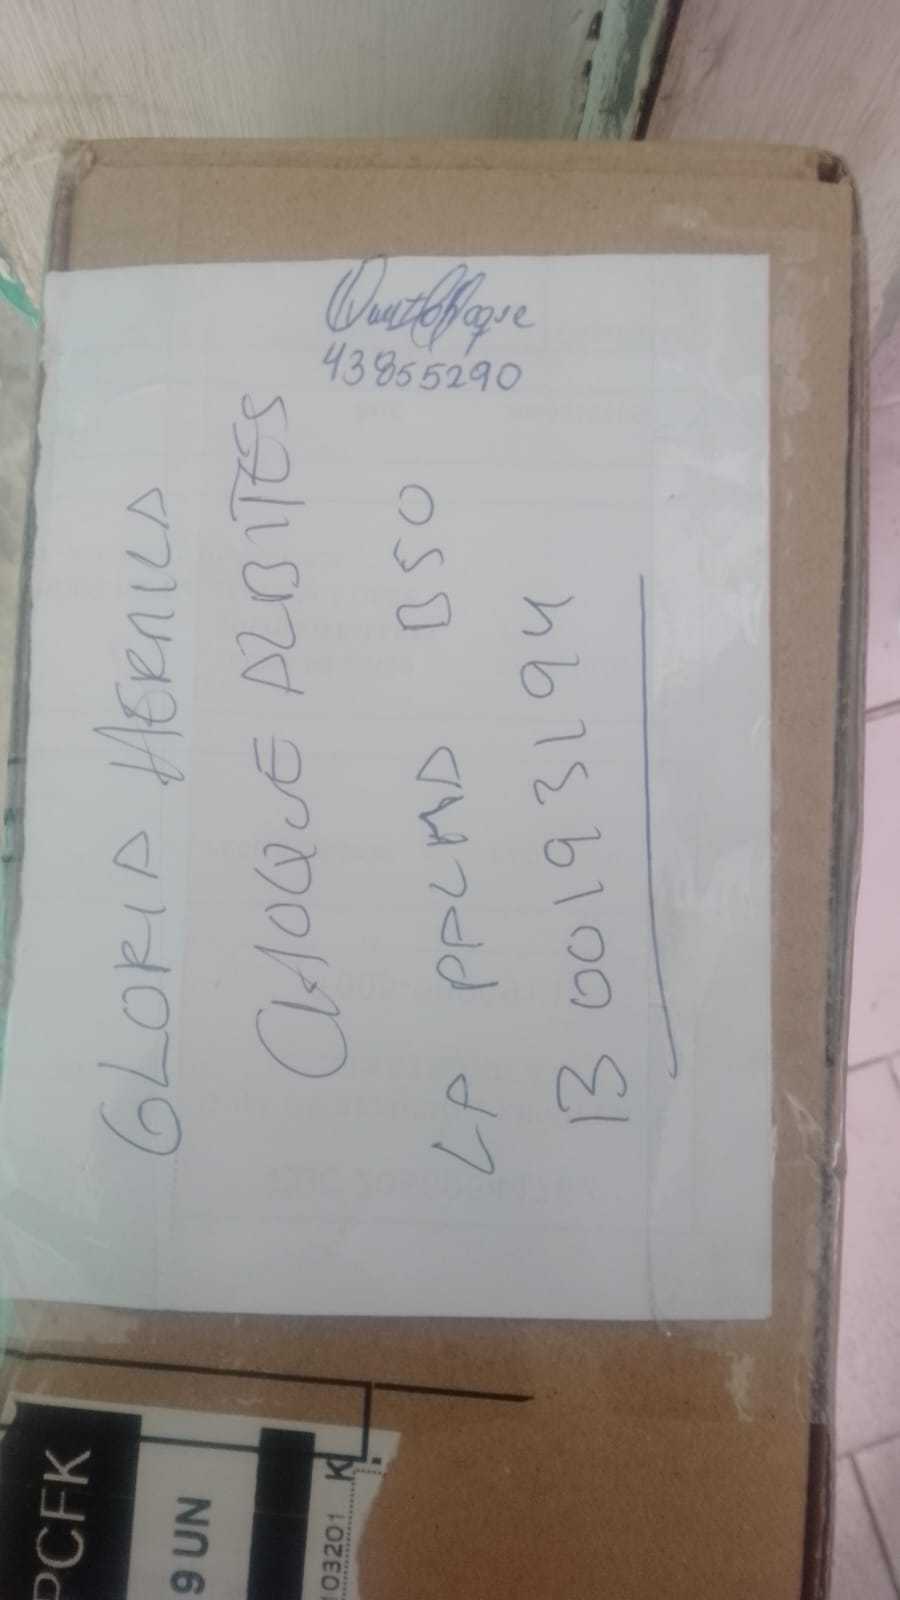 GLORIA HERMILA
CHOQUE ALBITES
LA PALMA 850
B 00193194
43855290
PCFK
9 UN
103201 K